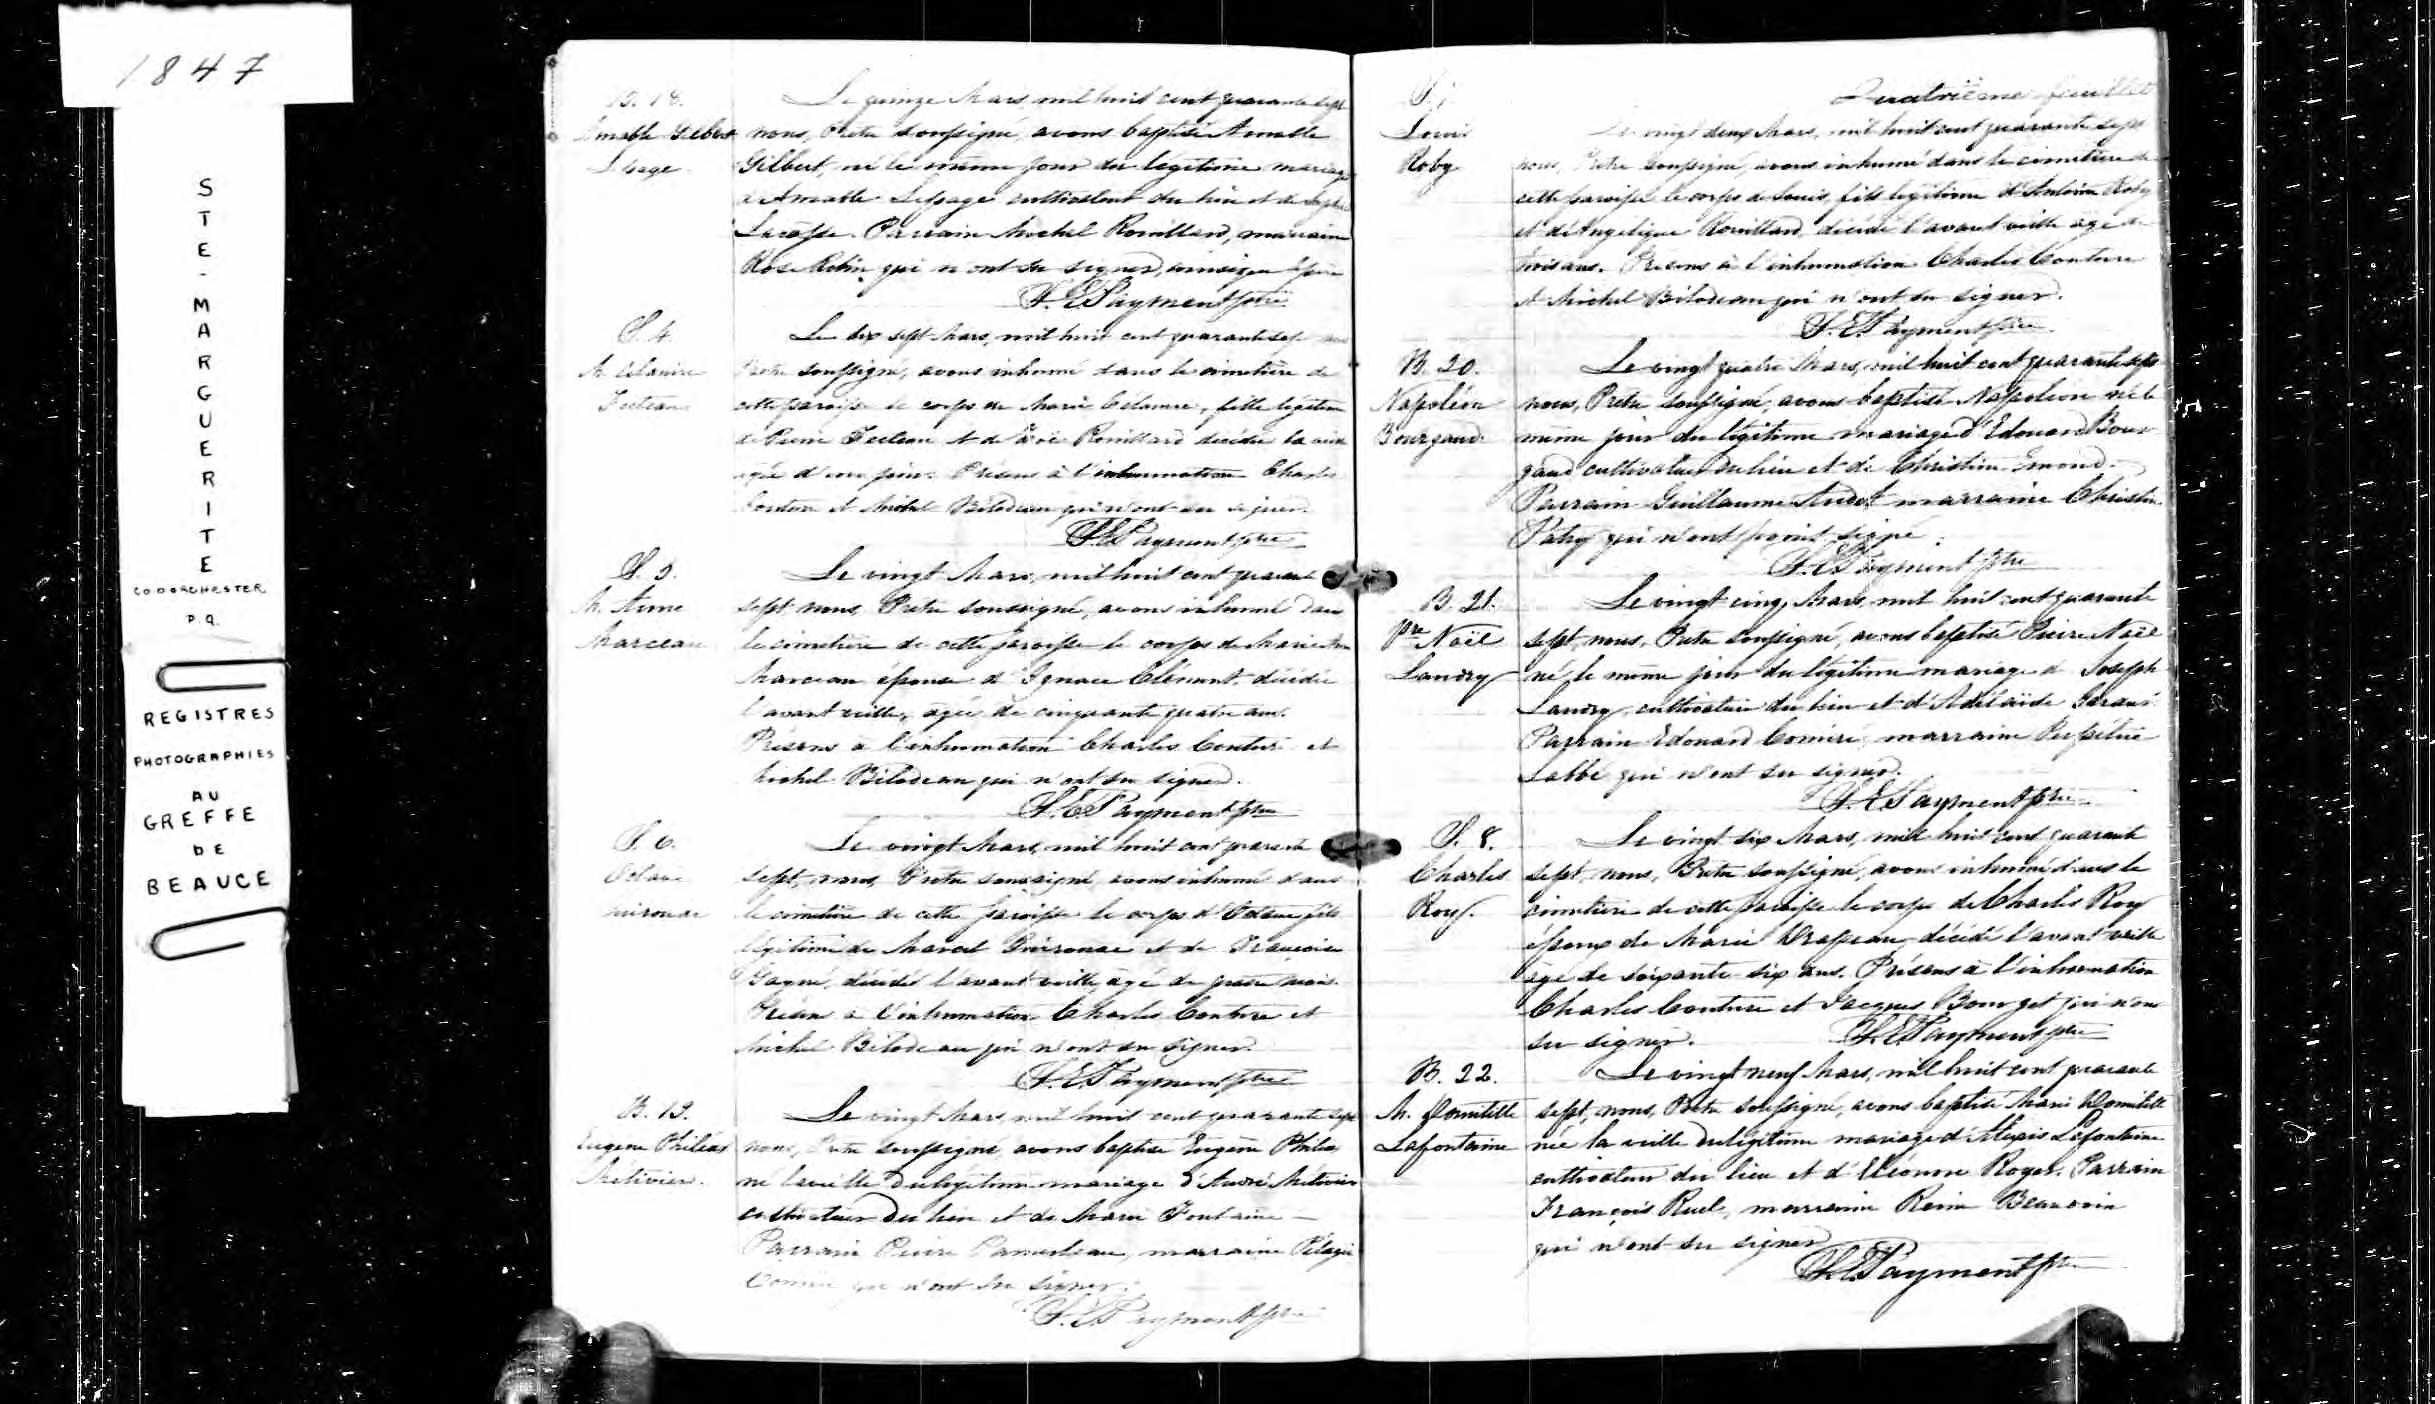 1847
STE-MARGUERITE
CO DORCHESTER
P.Q.
REGISTRES
PHOTOGRAPHIES
AU
GREFFE
DE
BEAUCE
B. 18.
Amable Gilbert
Lepage
Le quinze Mars, mil huit cent quarante sept
nous, Prêtre soussigné, avons baptisé Amable
Gilbert, né le même jour du légitime mariage
d'Amable Lepage cultivateur du lieu et de
Lacasse. Parrain Michel Rouillard, marraine
Rose qui n'ont su signer,
F.E. Payment ptre
S. 4.
M. Célanire
Fecteau
Le dix sept Mars, mil huit cent quarante sept nous
Prêtre soussigné, avons inhumé dans le cimetière de
cette paroisse le corps de Marie Célanire, fille légitime
de Pierre Fecteau et de Zoë Rouillard décédée la veille
agée d'un jour. Présens à l'inhumation Charles
Couture et Michel Bilodeau qui n'ont su signer.
F.E. Payment ptre
S. 5.
M. Anne
Marceau
Le vingt Mars, mil huit cent quarante
sept nous, Prêtre soussigné, avons inhumé dans
le cimetière de cette paroisse le corps de Marie Anne
Marceau épouse d'Ignace Clément, décédée
l'avant veille, agée de cinquante quatre ans.
Présens à l'inhumation Charles Couture et
Michel Bilodeau qui n'ont su signer.
F.E. Payment ptre
S. 6.
Octave
Le vingt Mars, mil huit cent quarante
sept, nous, Prêtre soussigné, avons inhumé dans
le cimetière de cette paroisse le corps d'Octave fils
légitime de Marcel et de Françoise
Gagné, décédé l'avant veille, agé de mois.
Présens à l'inhumation Charles Couture et
Michel Bilodeau qui n'ont su signer.
F.E. Payment ptre
B. 19.
Eugène Philéas
Métivier.
Le vingt Mars, mil huit cent quarante sept
nous, Prêtre soussigné, avons baptisé Eugène Philéas
né la veille du légitime mariage d'André Métivier
cultivateur du lieu et de Marie Fontaine
Parrain Pierre marraine Pélagie
qui n'ont su signer.
F.E. Payment ptre
Quatrième feuillet
S. 7.
Louis
Roby
Le vingt deux Mars, mil huit cent quarante sept
nous, Prêtre soussigné, avons inhumé dans le cimetière de
cette paroisse le corps de Louis, fils légitime d'Antoine Roby
et d'Angélique Rouillard, décédé l'avant veille agé de
trois ans. Présens à l'inhumation Charles Couture
et Michel Bilodeau qui n'ont su signer.
F.E. Payment ptre
B. 20.
Napoléon
Bourgaud
Le vingt quatre Mars, mil huit cent quarante sept
nous, Prêtre soussigné, avons baptisé Napoléon né le
même jour du légitime mariage d'Edouard Bour
gaud cultivateur du lieu et de Christine Emond.
Parrain Guillaume Audet marraine Christine
Patry qui n'ont point signé.
F.E. Payment ptre
B. 21.
Pre Noël
Landry
Le vingt cinq Mars, mil huit cent quarante
sept, nous, Prêtre soussigné, avons baptisé Pierre Noël
né le même jour du légitime mariage de Joseph
Landry, cultivateur du lieu et d'Adélaïde
Parrain Edouard marraine Perpétue
Labbé qui n'ont su signer.
F.E. Payment ptre
S. 8.
Charles
Roy.
Le vingt six Mars, mil huit cent quarante
sept, nous, Prêtre soussigné, avons inhumé dans le
cimetière de cette paroisse le corps de Charles Roy
époux de Marie Drapeau décédé l'avant veille
agé de soixante six ans. Présens à l'inhumation
Charles Couture et Jacques Bourget qui n'ont
su signer.
F.E. Payment ptre
B. 22.
M. Domitille
Lafontaine
Le vingt neuf Mars, mil huit cent quarante
sept, nous, Prêtre soussigné, avons baptisé Marie Domitille
née la veille du légitime mariage d'Alexis Lafontaine
cultivateur du lieu et d'Eléonore Roger. Parrain
François Ruel, marraine Reine Beaudoin
qui n'ont su signer
F.E. Payment ptre